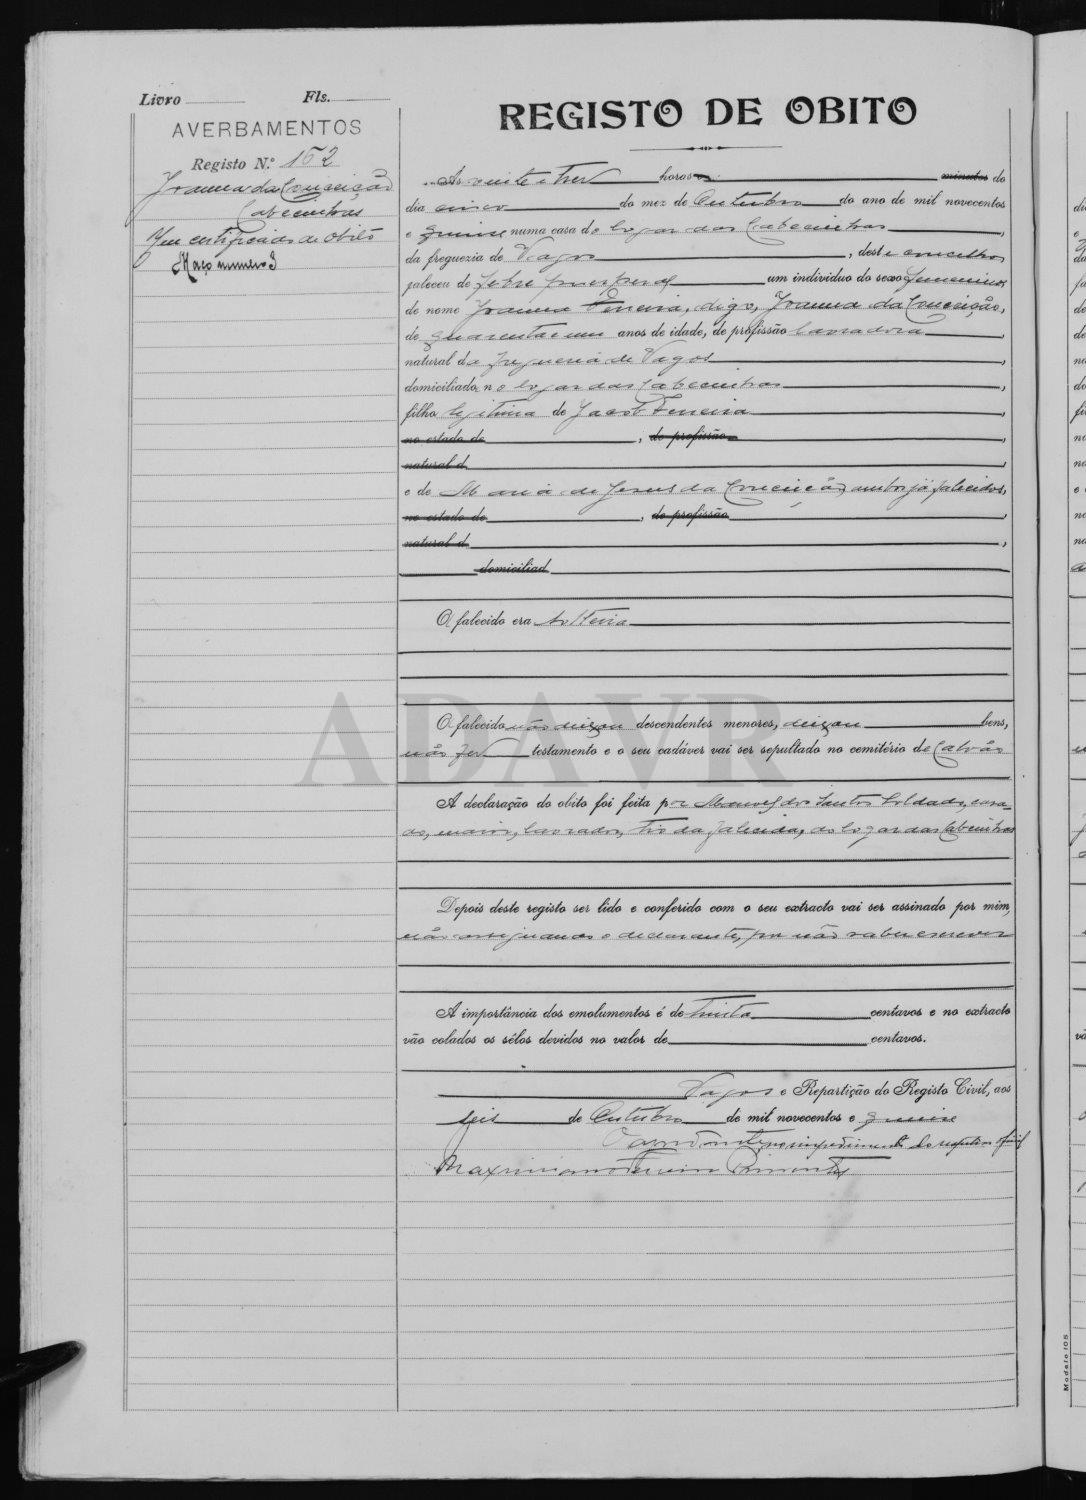 Livro Fls.
AVERBAMENTOS
Registo N.º 152
Joanna da Conceição
Cabecinhas
Tem certificado de obito
Maço numero 3
REGISTO DE OBITO
As vinte e tres horas e minutos do
dia cinco do mez de Outubro do ano de mil novecentos
e quinze numa casa do logar das Cabecinhas,
da freguezia de Vagos, deste concelho
faleceu de febre puerperal um individuo do sexo femenino,
de nome Joanna Ferreira, digo, Joanna da Conceição,
de quarenta e um anos de idade, de profissão lavradora,
natural da freguesia de Vagos,
domiciliado no logar das Cabecinhas,
filho legitima de Jacob Ferreira,
no estado de, de profissão,
natural d
e de Maria de Jesus da Conceição, ambos já falecidos,
no estado de, de profissão,
natural d,
domiciliad
O falecido era solteira
ADAVR
O falecido não deixou descendentes menores, deixou bens,
não fez testamento e o seu cadáver vai ser sepultado no cemitério de Calvão
A declaração do obito foi feita por Manuel dos Santos Soldado, casa-
do, maior, lavrador, tio da falecida, do logar das Cabecinhas
Depois deste registo ser lido e conferido com o seu extracto vai ser assinado por mim,
não assignando o declarante, por não saber escrever
A importância dos emolumentos é de trinta centavos e no extracto
vão colados os sêlos devidos no valor de centavos.
Vagos e Repartição do Registo Civil, aos
seis de Outubro de mil novecentos e quinze
O ajudante, no impedimento do respetivo oficial
Maximiano Pimentel
Modelo 105